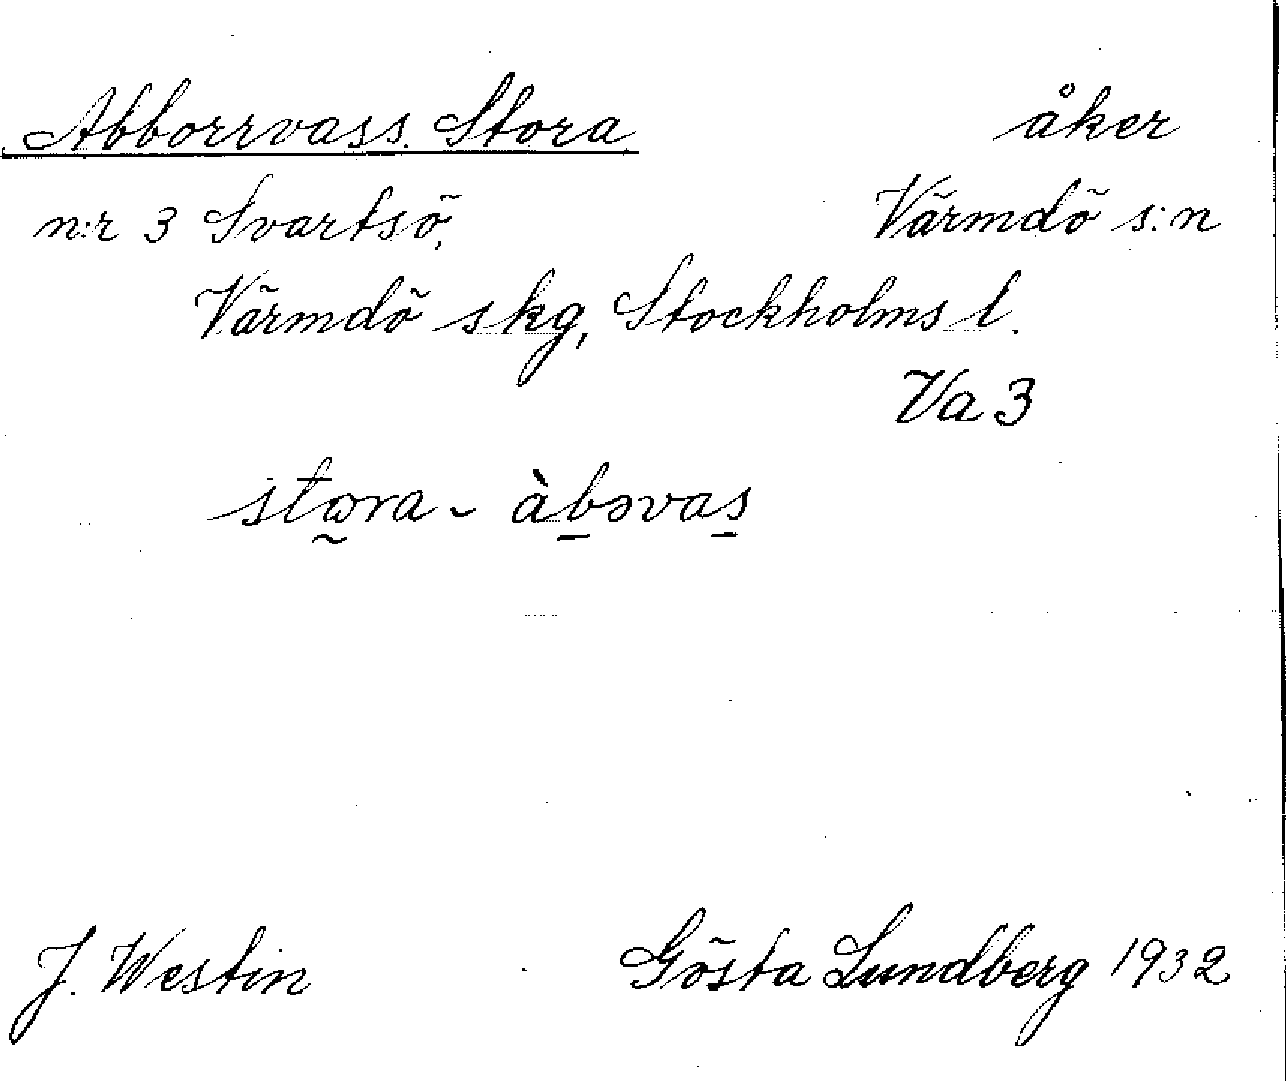 Abborrvass. Stora åker
n:r 3 Svartsö, Värmdö s:n
Värmdö skg, Stockholms l.
Va 3
stωra - àbəvas
J. Westin Gösta Lundberg 1932